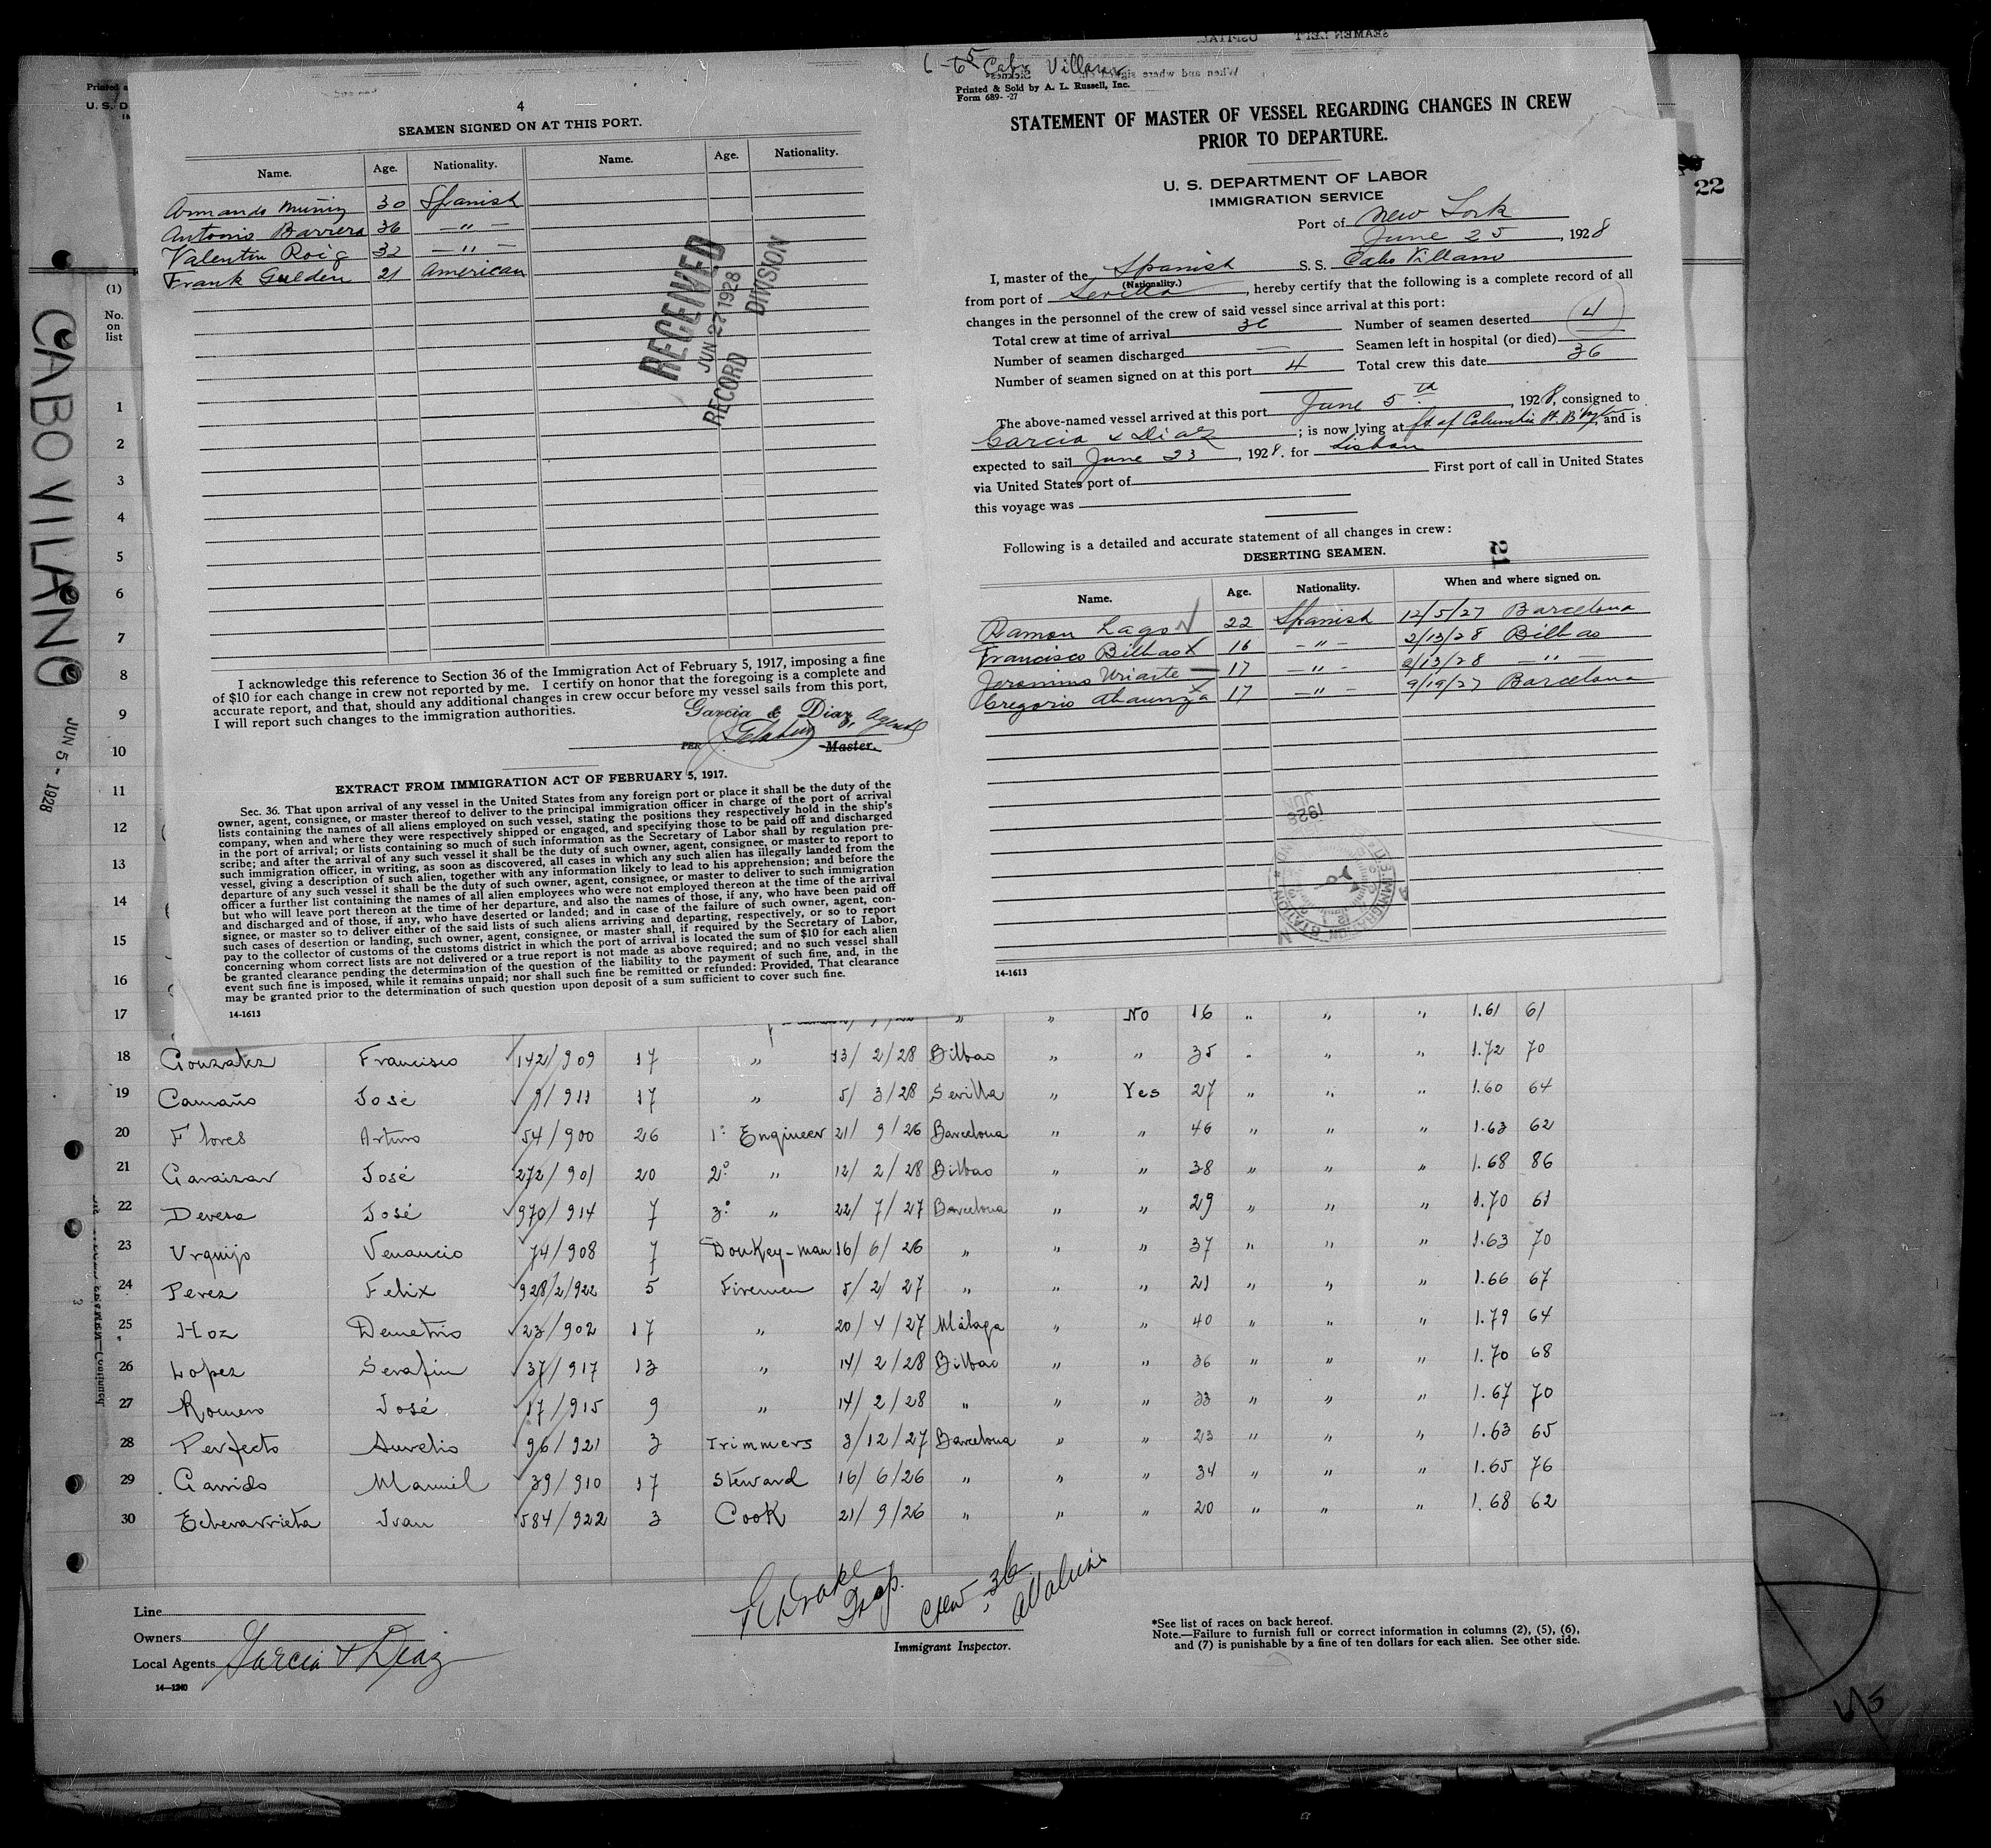 CABO VILANO
JUN 5 - 1928
4
SEAMEN SIGNED ON AT THIS PORT.
Name. Age. Nationality. Name. Age. Nationality.
Armando Muñiz 30 Spanish
Antonio Barrera 36 — " —
Valentin Roig 32 — " —
Frank Gulden 21 American
RECEIVED
JUN 27 1928
RECORD DIVISION
I acknowledge this reference to Section 36 of the Immigration Act of February 5, 1917, imposing a fine
of $10 for each change in crew not reported by me. I certify on honor that the foregoing is a complete and
accurate report, and that, should any additional changes in crew occur before my vessel sails from this port,
I will report such changes to the immigration authorities.
Garcia & Diaz, Agents
PER
Master.
EXTRACT FROM IMMIGRATION ACT OF FEBRUARY 5, 1917.
Sec. 36. That upon arrival of any vessel in the United States from any foreign port or place it shall be the duty of the
owner, agent, consignee, or master thereof to deliver to the principal immigration officer in charge of the port of arrival
lists containing the names of all aliens employed on such vessel, stating the positions they respectively hold in the ship's
company, when and where they were respectively shipped or engaged, and specifying those to be paid off and discharged
in the port of arrival; or lists containing so much of such information as the Secretary of Labor shall by regulation pre-
scribe; and after the arrival of any such vessel it shall be the duty of such owner, agent, consignee, or master to report to
such immigration officer, in writing, as soon as discovered, all cases in which any such alien has illegally landed from the
vessel, giving a description of such alien, together with any information likely to lead to his apprehension; and before the
departure of any such vessel it shall be the duty of such owner, agent, consignee, or master to deliver to such immigration
officer a further list containing the names of all alien employees who were not employed thereon at the time of the arrival
but who will leave port thereon at the time of her departure, and also the names of those, if any, who have been paid off
and discharged and of those, if any, who have deserted or landed; and in case of the failure of such owner, agent, con-
signee, or master so to deliver either of the said lists of such aliens arriving and departing, respectively, or so to report
such cases of desertion or landing, such owner, agent, consignee, or master shall, if required by the Secretary of Labor,
pay to the collector of customs of the customs district in which the port of arrival is located the sum of $10 for each alien
concerning whom correct lists are not delivered or a true report is not made as above required; and no such vessel shall
be granted clearance pending the determination of the question of the liability to the payment of such fine, and, in the
event such fine is imposed, while it remains unpaid; nor shall such fine be remitted or refunded: Provided, That clearance
may be granted prior to the determination of such question upon deposit of a sum sufficient to cover such fine.
14-1613
Cabo Villano
Printed & Sold by A. L. Russell, Inc.
Form 689- -27
STATEMENT OF MASTER OF VESSEL REGARDING CHANGES IN CREW
PRIOR TO DEPARTURE.
U. S. DEPARTMENT OF LABOR
IMMIGRATION SERVICE
Port of New York
June 25, 1928
I, master of the Spanish S. S. Cabo Villano
(Nationality.)
from port of Sevilla, hereby certify that the following is a complete record of all
changes in the personnel of the crew of said vessel since arrival at this port:
Total crew at time of arrival 36 Number of seamen deserted 4
Number of seamen discharged — Seamen left in hospital (or died)
Number of seamen signed on at this port 4 Total crew this date 36
The above-named vessel arrived at this port June 5th, 1928, consigned to
Garcia & Diaz; is now lying at ft of Columbia St. B'klyn, and is
expected to sail June 23, 1928. for Lisbon
via United States port of First port of call in United States
this voyage was
Following is a detailed and accurate statement of all changes in crew:
DESERTING SEAMEN.
21
Name. Age. Nationality. When and where signed on.
Ramon Lago 22 Spanish 12/5/27 Barcelona
Francisco Bilbao 16 — " — 2/13/28 Bilbao
Jeronimo Uriarte 17 — " — 2/13/28 — " —
Gregorio Abaunza 17 — " — 9/19/27 Barcelona
1928
IMMIGRATION STATION
14-1613
22
(1)
No.
on
list
1
2
3
4
5
6
7
8
9
10
11
12
13
14
15
16
17 " " No 16 " " " 1.61 61
18 Gonzalez Francisco 142/909 17 " 13/2/28 Bilbao " " 35 " " " 1.72 70
19 Camaño José 9/911 17 " 5/3/28 Sevilla " Yes 27 " " " 1.60 64
20 Flores Arturo 54/900 26 1º Engineer 21/9/26 Barcelona " " 46 " " " 1.63 62
21 Garaizar José 272/901 20 2º " 12/2/28 Bilbao " " 38 " " " 1.68 86
22 Devesa José 970/914 7 3º " 22/7/27 Barcelona " " 29 " " " 1.70 61
23 Urquijo Venancio 74/908 7 Donkey-man 16/6/26 " " " 37 " " " 1.63 70
24 Perez Felix 928/2/922 5 Firemen 5/2/27 " " " 21 " " " 1.66 67
25 Hoz Demetrio 23/902 17 " 20/4/27 Málaga " " 40 " " " 1.79 64
26 Lopez Serafin 37/917 13 " 14/2/28 Bilbao " " 36 " " " 1.70 68
27 Romero José 17/915 9 " 14/2/28 " " " 33 " " " 1.67 70
28 Perfecto Aurelio 96/921 3 Trimmers 3/12/27 Barcelona " " 23 " " " 1.63 65
29 Garrido Manuel 39/910 17 Steward 16/6/26 " " " 34 " " " 1.65 76
30 Echevarrieta Juan 584/922 3 Cook 21/9/26 " " " 20 " " " 1.68 62
Line
Owners
Local Agents Garcia & Diaz
14—1240
Drake Insp. Crew - 36
Immigrant Inspector.
*See list of races on back hereof.
Note.—Failure to furnish full or correct information in columns (2), (5), (6),
and (7) is punishable by a fine of ten dollars for each alien. See other side.
6/5